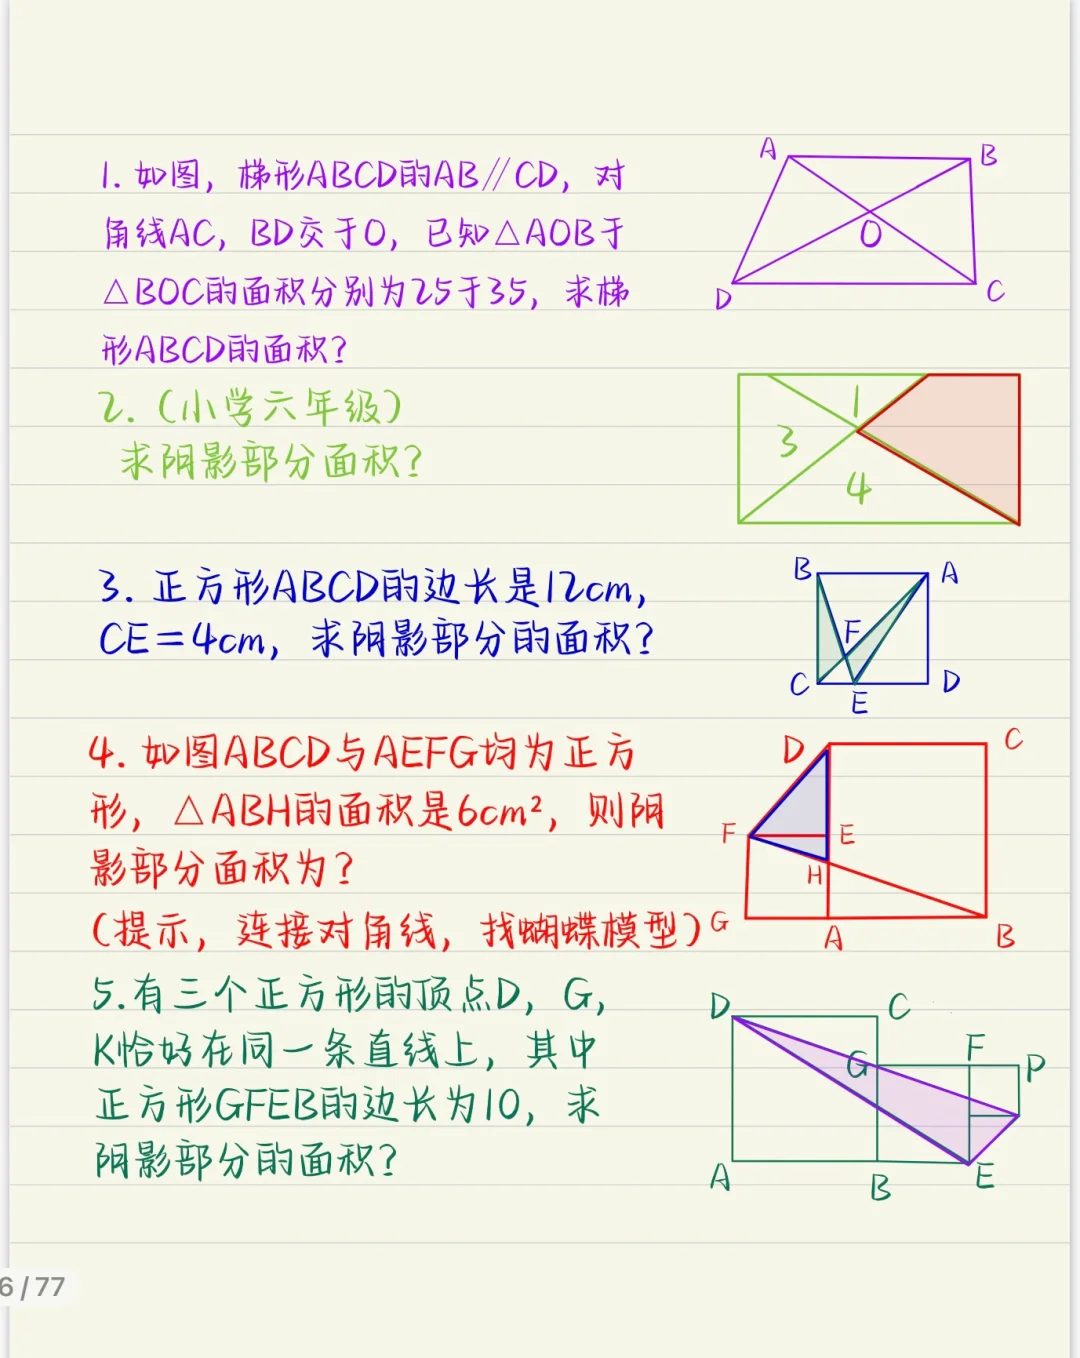 1. 如图，梯形ABCD的AB∥CD，对
角线AC，BD交于O，已知△AOB于
△BOC的面积分别为25于35，求梯
形ABCD的面积？
A
B
O
D
C
2.（小学六年级）
求阴影部分面积？
1
3
4
3. 正方形ABCD的边长是12cm，
CE=4cm，求阴影部分的面积？
B
A
F
C
D
E
4. 如图ABCD与AEFG均为正方
形，△ABH的面积是6cm²，则阴
影部分面积为？
（提示，连接对角线，找蝴蝶模型）
D
C
F
E
H
G
A
B
5.有三个正方形的顶点D，G，
K恰好在同一条直线上，其中
正方形GFEB的边长为10，求
阴影部分的面积？
D
C
G
F
P
A
B
E
6/77